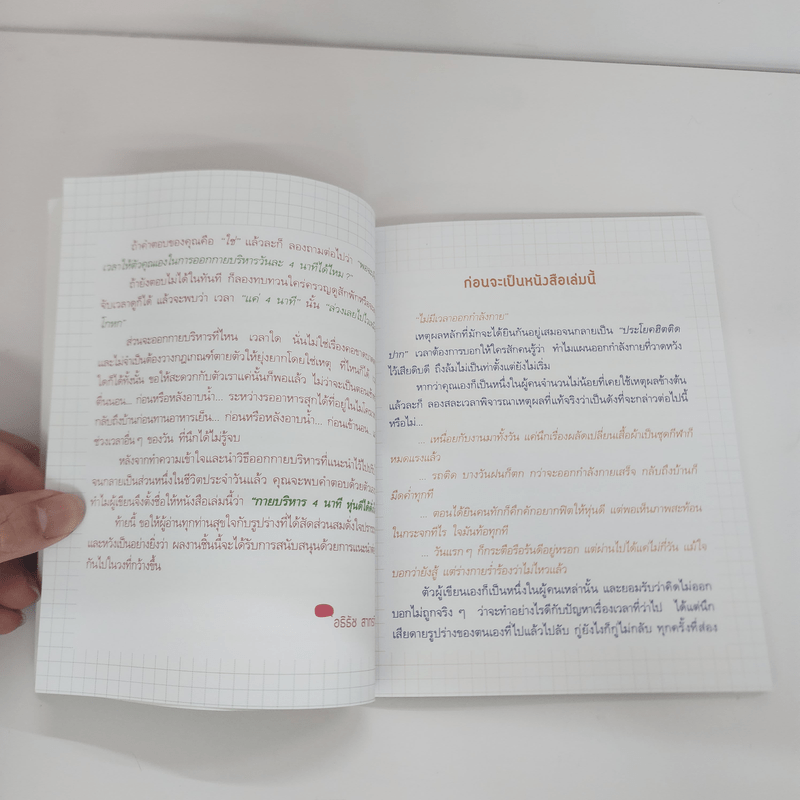 ถ้าคำตอบของคุณคือ "ใช่" แล้วละก็ ลองถามต่อไปว่า
เวลาให้ตัวคุณเองในการออกกายบริหารวันละ 4 นาทีได้ไหม?"
ถ้ายังตอบไม่ได้ในทันที ก็ลองทบทวนใคร่ครวญดูสักพักหรือ
จับเวลาดูก็ได้ แล้วจะพบว่า เวลา "แค่ 4 นาที" นั้น "ล่วงเลยไป
โกรธก"
ส่วนจะออกกายบริหารที่ไหน เวลาใด นั่นไม่ใช่เรื่องคอขาด
และไม่จำเป็นต้องวางกฎเกณฑ์ตายตัวให้ยุ่งยากโดยใช่เหตุ ที่ไหนก็ได้
ใดก็ได้ทั้งนั้น ขอให้สะดวกกับตัวเราแค่นั้นก็พอแล้ว ไม่ว่าจะเป็นตอน
ตื่นนอน... ก่อนหรือหลังอาบน้ำ... ระหว่างรอ
กลับถึงบ้านก่อนทานอาหารเย็น... ก่อนหรือหลังอาบน้ำ... ก่อนเข้านอน
ช่วงเวลาอื่นๆ ของวัน ที่นึกได้ไม่รู้จบ
หลังจากทำความเข้าใจและนำวิธีออกกายบริหารที่แนะนำไว้ไป
จนกลายเป็นส่วนหนึ่งในชีวิตประจำวันแล้ว คุณจะพบคำตอบด้วยตัว
ทำไมผู้เขียนจึงตั้งชื่อให้หนังสือเล่มนี้ว่า "กายบริหาร 4 นาที หุ่นดีได้
ท้ายนี้ ขอให้ผู้อ่านทุกท่านสุขใจกับรูปร่างที่ได้สัดส่วนสมดังใจ
และหวังเป็นอย่างยิ่งว่า ผลงานชิ้นนี้จะได้รับการสนับสนุนด้วยการแนะนำ
กันไปในวงที่กว้างขึ้น
อธิธัช
ก่อนจะเป็นหนังสือเล่มนี้
"ไม่มีเวลาออกกำลังกาย"
เหตุผลหลักที่มักจะได้ยินกันอยู่เสมอจนกลายเป็น "ประโยคฮิตติด
ปาก" เวลาต้องการบอกให้ใครสักคนรู้ว่า ทำไมแผนออกกำลังกายที่วาดหวัง
ไว้เสียดิบดี ถึงล้มไม่เป็นท่าตั้งแต่ยังไม่เริ่ม
หากว่าคุณเองก็เป็นหนึ่งในผู้คนจำนวนไม่น้อยที่เคยใช้เหตุผลข้างต้น
แล้วละก็ ลองสละเวลาพิจารณาเหตุผลที่แท้จริงว่าเป็นดังที่จะกล่าวต่อไปนี้
หรือไม่...
... เหนื่อยกับงานมาทั้งวัน แค่นึกเรื่องผลัดเปลี่ยนเสื้อผ้าเป็นชุดกีฬาก็
หมดแรงแล้ว
... รถติด บางวันฝนก็ตก กว่าจะออกกำลังกายเสร็จ กลับถึงบ้านก็
มืดค่ำทุกที
... ตอนได้ยินคนทักก็คึกคักอยากฟิตให้หุ่นดี แต่พอเห็นภาพสะท้อน
ในกระจกทีไร ใจมันท้อทุกที
... วันแรกๆ ก็กระตือรือร้นดีอยู่หรอก แต่ผ่านไปได้แค่ไม่กี่วัน แม้ใจ
บอกว่ายังสู้ แต่ร่างกายร่ำร้องว่าไม่ไหวแล้ว
ตัวผู้เขียนเองก็เป็นหนึ่งในผู้คนเหล่านั้น และยอมรับว่าคิดไม่ออก
บอกไม่ถูกจริงๆ ว่าจะทำอย่างไรดีกับปัญหาเรื่องเวลาที่ว่าไป ได้แต่นึก
เสียดายรูปร่างของตนเองที่ไปแล้วไปลับ กู่ยังไงก็กู่ไม่กลับ ทุกครั้งที่ส่อง